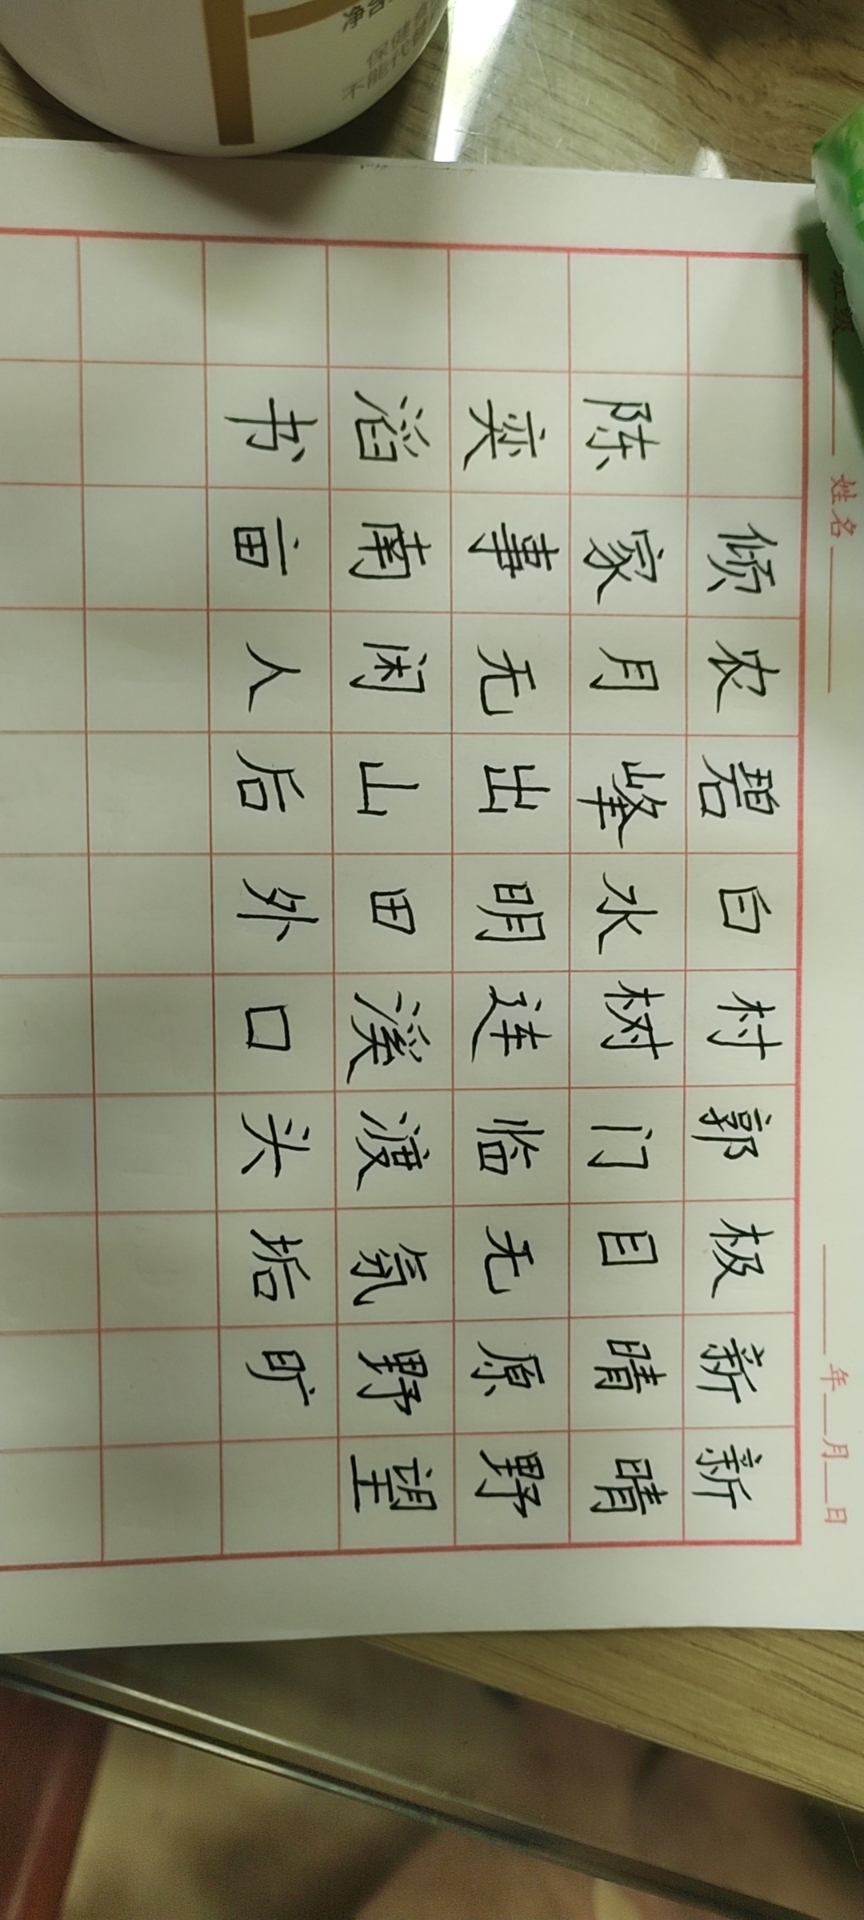 班级 姓名 年 月 日
新晴野望
新晴原野旷
极目无氛垢
郭门临渡头
村树连溪口
白水明田外
碧峰出山后
农月无闲人
倾家事南亩
陈奕滔书
保健
不能代